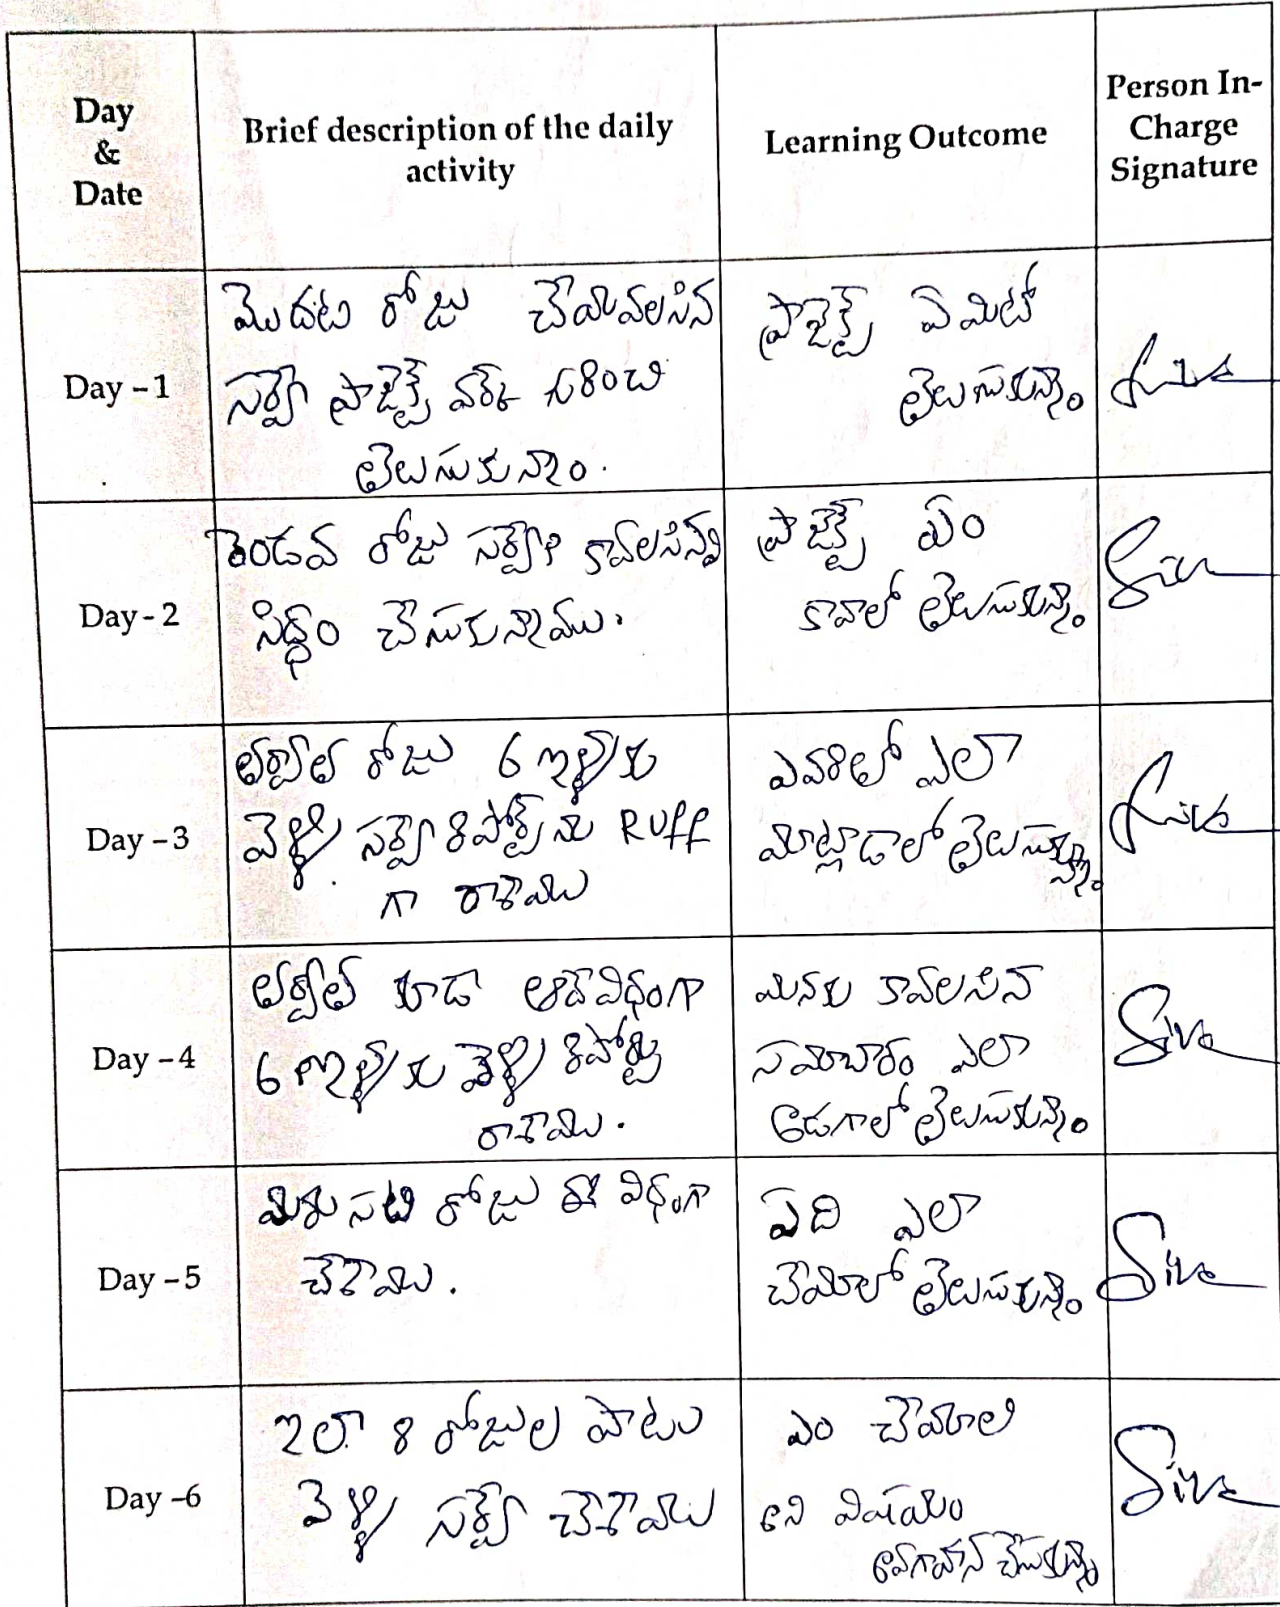 Day & Date
Brief description of the daily activity
Learning Outcome
Person In-Charge Signature
Day – 1
మొదట రోజు చేయవలసిన
సర్వే ప్రాజెక్ట్ వర్క్ గురించి
తెలుసుకున్నాం.
ప్రాజెక్ట్ ఏమిటో
తెలుసుకున్నాం
Siva
Day - 2
రెండవ రోజు సర్వేకి కావలసినవి
సిద్ధం చేసుకున్నాము.
ప్రాజెక్ట్ ఏం
కావాలో తెలుసుకున్నాం
Siva
Day – 3
తర్వాత రోజు 6 ఇళ్ళకు
వెళ్ళి సర్వే రిపోర్ట్ ను Ruff
గా రాశాము
ఎవరితో ఎలా
మాట్లాడాలో తెలుసుకున్నాం
Siva
Day – 4
తర్వాత కూడా అదేవిధంగా
6 ఇళ్ళకు వెళ్ళి రిపోర్టు
రాశాము.
మనకు కావలసిన
సమాచారం ఎలా
అడగాలో తెలుసుకున్నాం
Siva
Day – 5
మరుసటి రోజు ఈ విధంగా
చేశాము.
ఏది ఎలా
చేయాలో తెలుసుకున్నాం
Siva
Day –6
ఇలా 8 రోజుల పాటు
వెళ్ళి సర్వే చేశాము
ఎం చేయాలి
అని విషయం
అవగాహన చేసుకున్నాం
Siva